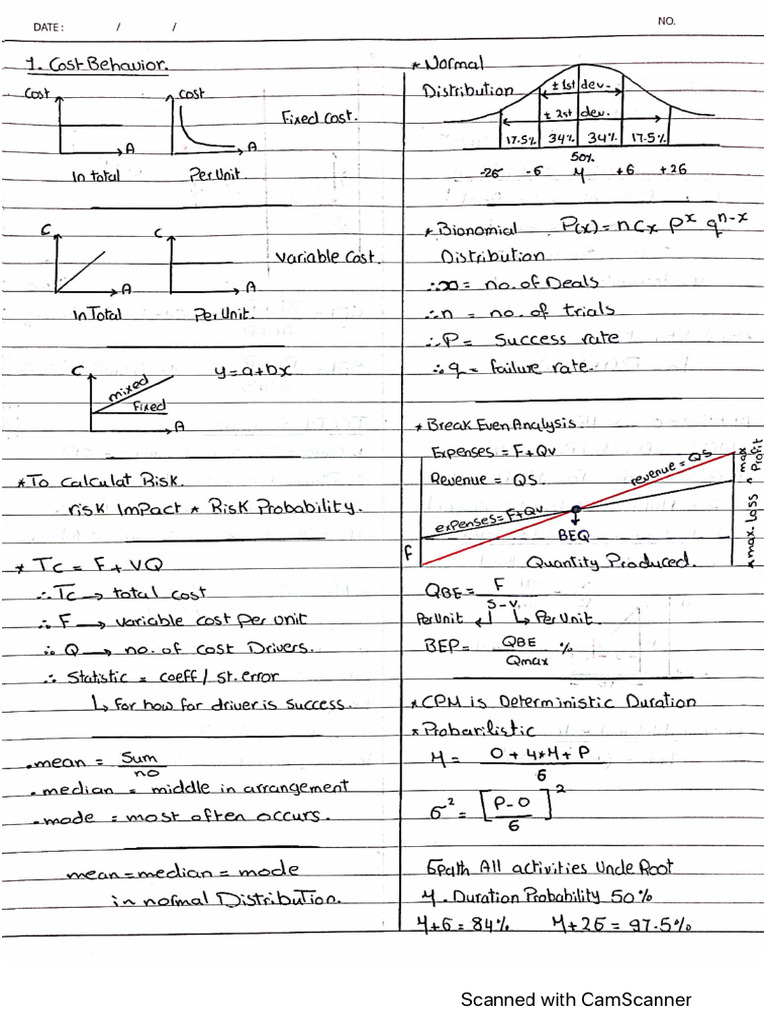 DATE: / /
NO.
1. Cost Behavior.
Cost
A
In total
Cost
A
Per Unit
Fixed Cost.
C
A
In Total
C
A
Per Unit.
Variable Cost.
C
mixed
Fixed
A
y = a + bx
* To Calculat Risk.
risk Impact * Risk Probability.
* Tc = F + VQ
∴ Tc → total cost
∴ F → variable cost per unit
∴ Q → no. of cost Drivers.
∴ Statistic = coeff / st. error
↳ For how far driver is success.
. mean = Sum / no
. median = middle in arrangement
. mode = most often occurs.
mean = median = mode
in normal Distribution.
* Normal
Distribution
± 1st dev.
± 2st dev.
17.5% 34% 34% 17.5%
50%
-2σ -σ μ +σ +2σ
* Bionomial P(x) = nCx p^x q^n-x
Distribution
∴ x = no. of Deals
∴ n = no. of trials
∴ P = Success rate
∴ q = failure rate.
* Break Even Analysis
Expenses = F + Qv
Revenue = QS
revenue = QS
expenses = F + Qv
F
BEQ
* max. Loss * max Profit
Quantity Produced.
QBE = F / S-V
Per Unit ↲ ↳ Per Unit.
BEP = QBE / Qmax %
* CPM is Deterministic Duration
* Probarilistic
μ = O + 4*M + P / 6
σ² = [P-O / 6]²
σpath All activities Unde Root
μ. Duration Probability 50%
μ+σ = 84% μ+2σ = 97.5%
Scanned with CamScanner